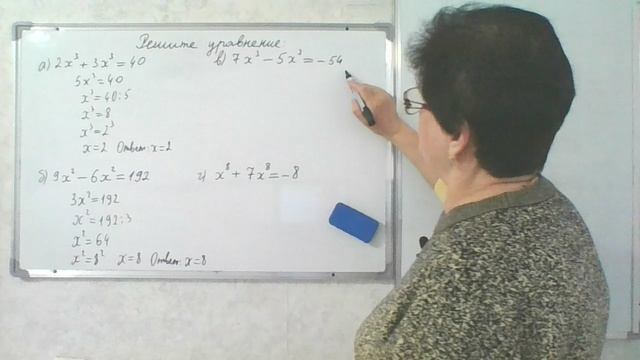 Решите уравнение:
а) 2x³ + 3x³ = 40
5x³ = 40
x³ = 40:5
x³ = 8
x³ = 2³
x = 2 Ответ: x = 2
б) 9x² − 6x² = 192
3x² = 192
x² = 192:3
x² = 64
x² = 8² x = 8 Ответ: x = 8
в) 7x³ − 5x³ = −54
г) x⁸ + 7x⁸ = −8